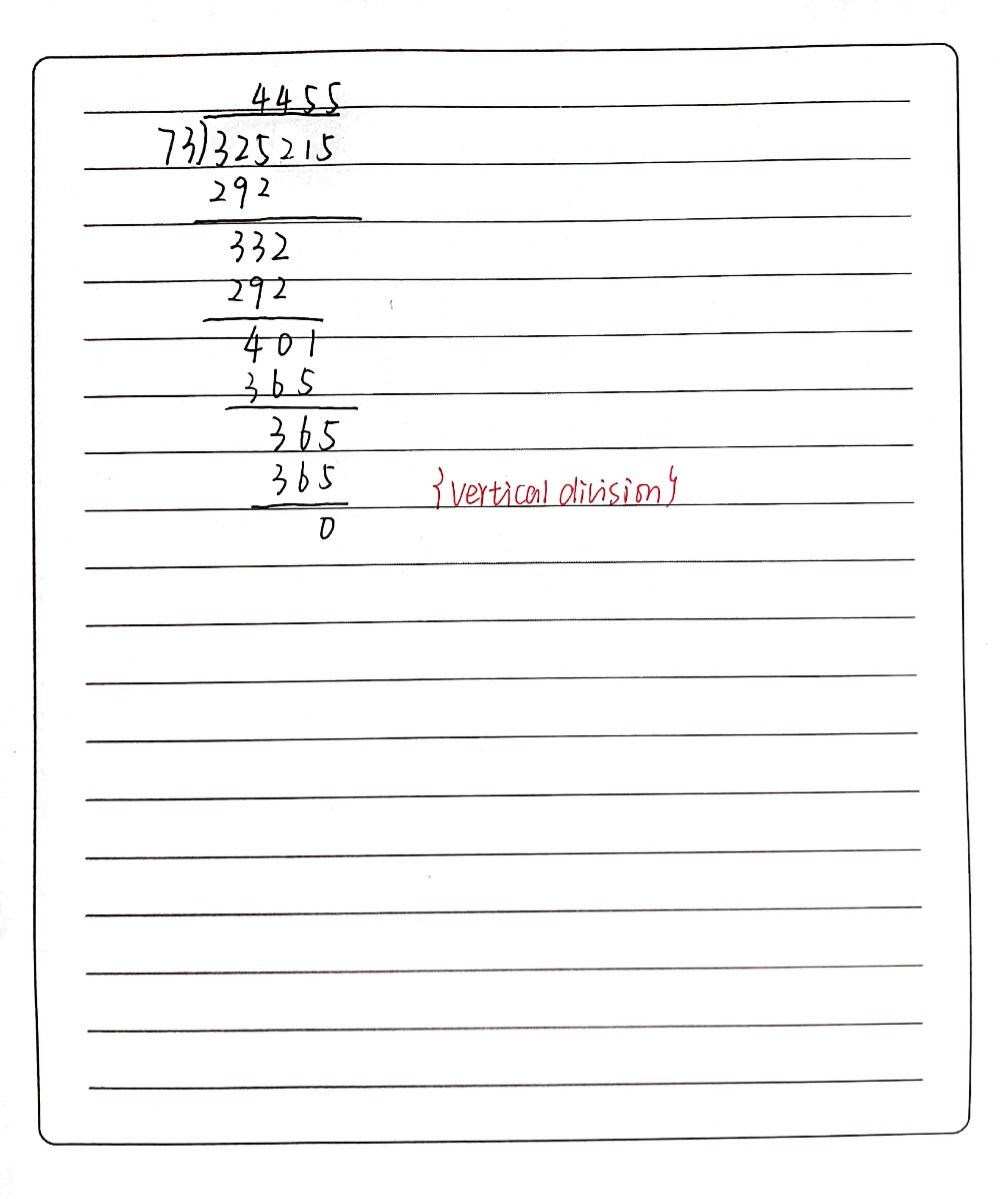 4455
73)325215
292
332
292
401
365
365
365 {vertical division}
0